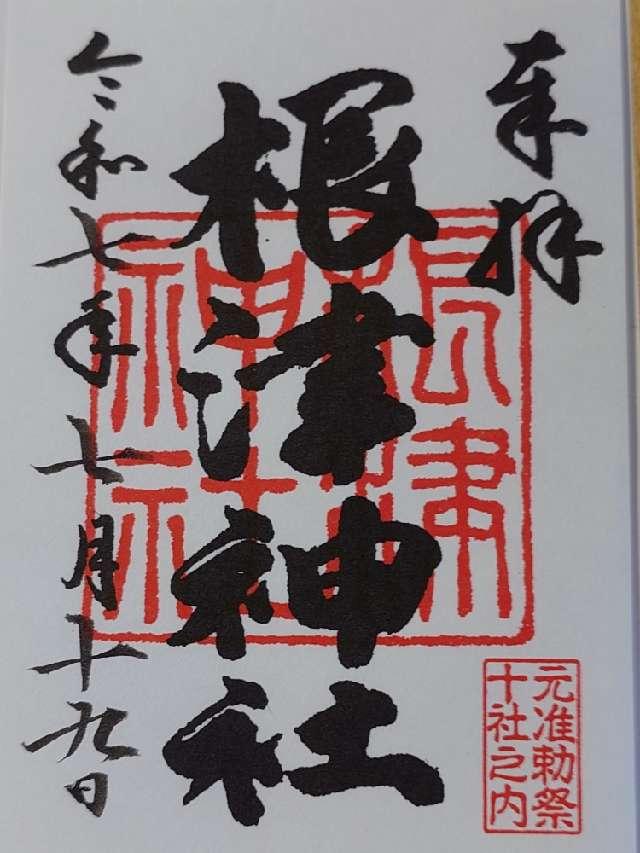 奉拝
根津神社
根津神社
元准勅祭
十社之内
令和七年七月十九日